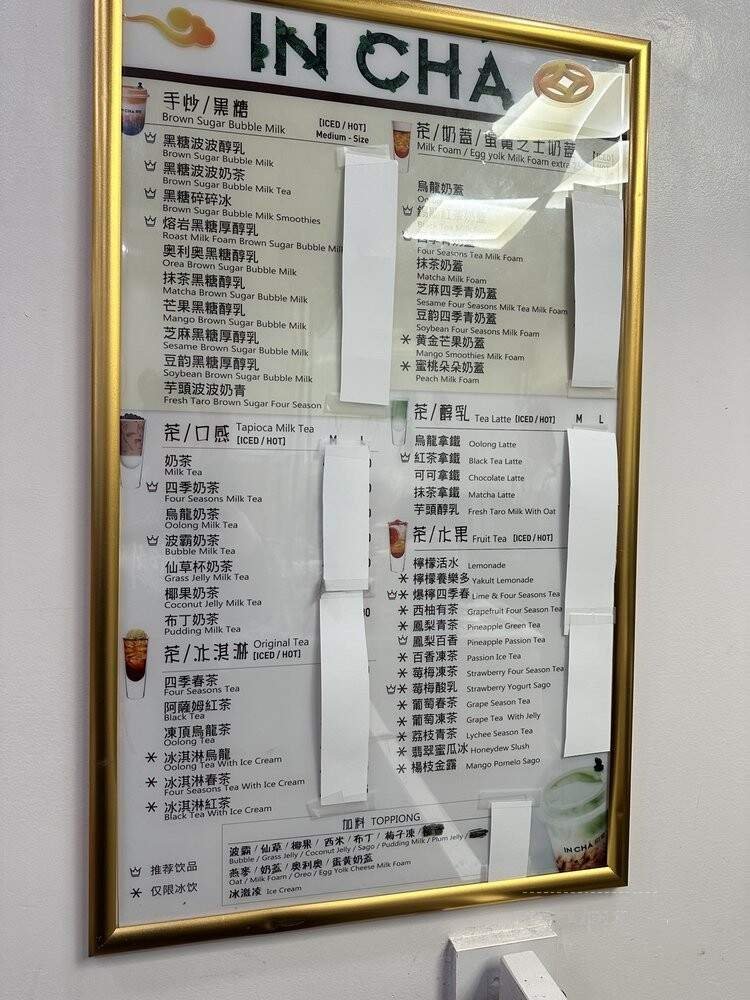 IN CHA
手炒/黑糖
Brown Sugar Bubble Milk
[ICED / HOT]
Medium - Size
黑糖波波醇乳
Brown Sugar Bubble Milk
黑糖波波奶茶
Brown Sugar Bubble Milk Tea
黑糖碎碎冰
Brown Sugar Bubble Milk Smoothies
熔岩黑糖厚醇乳
Roast Milk Foam Brown Sugar Bubble Milk
奧利奧黑糖醇乳
Orea Brown Sugar Bubble Milk
抹茶黑糖醇乳
Matcha Brown Sugar Bubble Milk
芒果黑糖醇乳
Mango Brown Sugar Bubble Milk
芝麻黑糖厚醇乳
Sesame Brown Sugar Bubble Milk
豆韵黑糖厚醇乳
Soybean Brown Sugar Bubble Milk
芋頭波波奶青
Fresh Taro Brown Sugar Four Season
茶/口感 Tapioca Milk Tea
[ICED / HOT]
M L
奶茶
Milk Tea
四季奶茶
Four Seasons Milk Tea
烏龍奶茶
Oolong Milk Tea
波霸奶茶
Bubble Milk Tea
仙草杯奶茶
Grass Jelly Milk Tea
椰果奶茶
Coconut Jelly Milk Tea
布丁奶茶
Pudding Milk Tea
茶/冰淇淋 Original Tea
[ICED / HOT]
四季春茶
Four Seasons Tea
阿薩姆紅茶
Black Tea
凍頂烏龍茶
Oolong Tea
* 冰淇淋烏龍
Oolong Tea With Ice Cream
* 冰淇淋春茶
Four Seasons Tea With Ice Cream
* 冰淇淋紅茶
Black Tea With Ice Cream
茶/奶蓋/蛋黄芝士奶蓋
Milk Foam / Egg yolk Milk Foam extra
烏龍奶蓋
Black Tea Milk Foam
四季青奶蓋
Four Seasons Tea Milk Foam
抹茶奶蓋
Matcha Milk Foam
芝麻四季青奶蓋
Sesame Four Seasons Milk Tea Milk Foam
豆韵四季青奶蓋
Soybean Four Seasons Milk Foam
* 黄金芒果奶蓋
Mango Smoothies Milk Foam
* 蜜桃朵朵奶蓋
Peach Milk Foam
茶/醇乳 Tea Latte [ICED / HOT] M L
烏龍拿鐵 Oolong Latte
紅茶拿鐵 Black Tea Latte
可可拿鐵 Chocolate Latte
抹茶拿鐵 Matcha Latte
芋頭醇乳 Fresh Taro Milk With Oat
茶/水果 Fruit Tea [ICED / HOT]
檸檬活水 Lemonade
* 檸檬養樂多 Yakult Lemonade
* 爆檸四季春 Lime & Four Seasons Tea
* 西柚有茶 Grapefruit Four Season Tea
* 鳳梨青茶 Pineapple Green Tea
鳳梨百香 Pineapple Passion Tea
* 百香凍茶 Passion Ice Tea
* 莓梅凍茶 Strawberry Four Season Tea
* 莓梅酸乳 Strawberry Yogurt Sago
* 葡萄春茶 Grape Season Tea
* 葡萄凍茶 Grape Tea With Jelly
* 荔枝青茶 Lychee Season Tea
* 翡翠蜜瓜冰 Honeydew Slush
* 楊枝金露 Mango Pomelo Sago
加料 TOPPIONG
波霸 / 仙草 / 椰果 / 西米 / 布丁 / 梅子凍 /
Bubble / Grass Jelly / Coconut Jelly / Sago / Pudding Milk / Plum Jelly /
燕麥 / 奶蓋 / 奧利奧 / 蛋黄奶蓋
Oat / Milk Foam / Oreo / Egg Yolk Cheese Milk Foam
冰淇凌 Ice Cream
推荐饮品
* 仅限冰饮
IN CHA